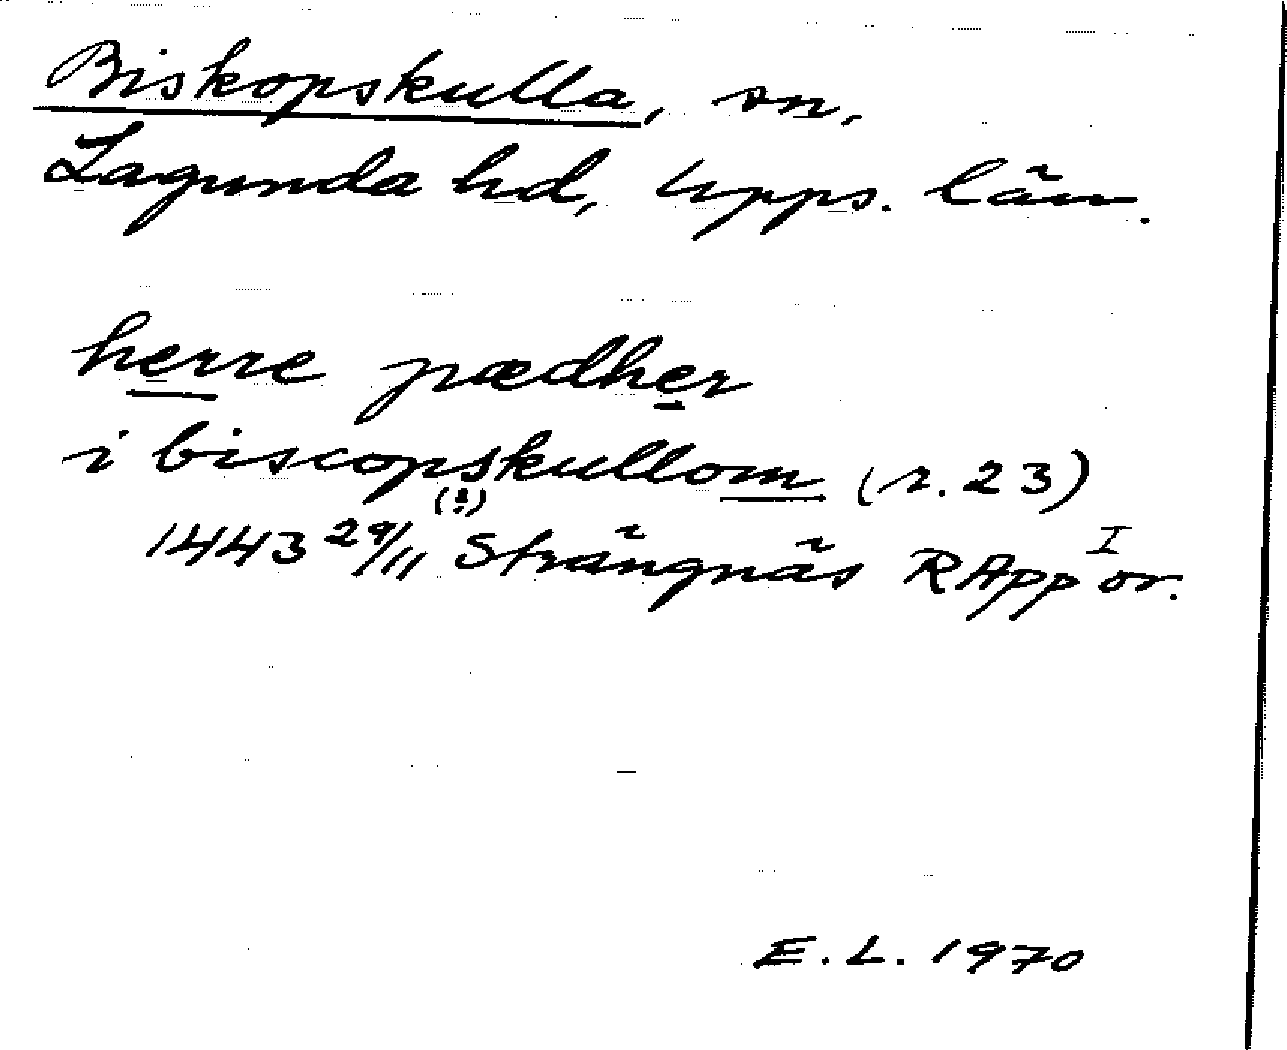 Biskopskulla, sn,
Lagunda hd, Upps. län.
herre pædher
i biscopskullom (r. 23)
(?)
1443 29/11 Strängnäs RApp I or.
E. L. 1970